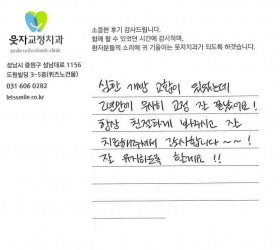 웃자교정치과
smile orthodontic clinic
성남시 중원구 성남대로 1156
도원빌딩 3~5층(퀴즈노건물)
031 606 0282
letssmile.co.kr
소중한 후기 감사드립니다.
함께 할 수 있었던 시간에 감사하며,
환자분들의 소리에 귀 기울이는 웃자치과가 되도록 하겠습니다.
심한 개방 교합이 있었는데
2년만에 무사히 교정 잘 끝났어요!
항상 친절하게 봐주시고 잘
치료해주셔서 감사합니다~~!
잘 유지하도록 할게요!!